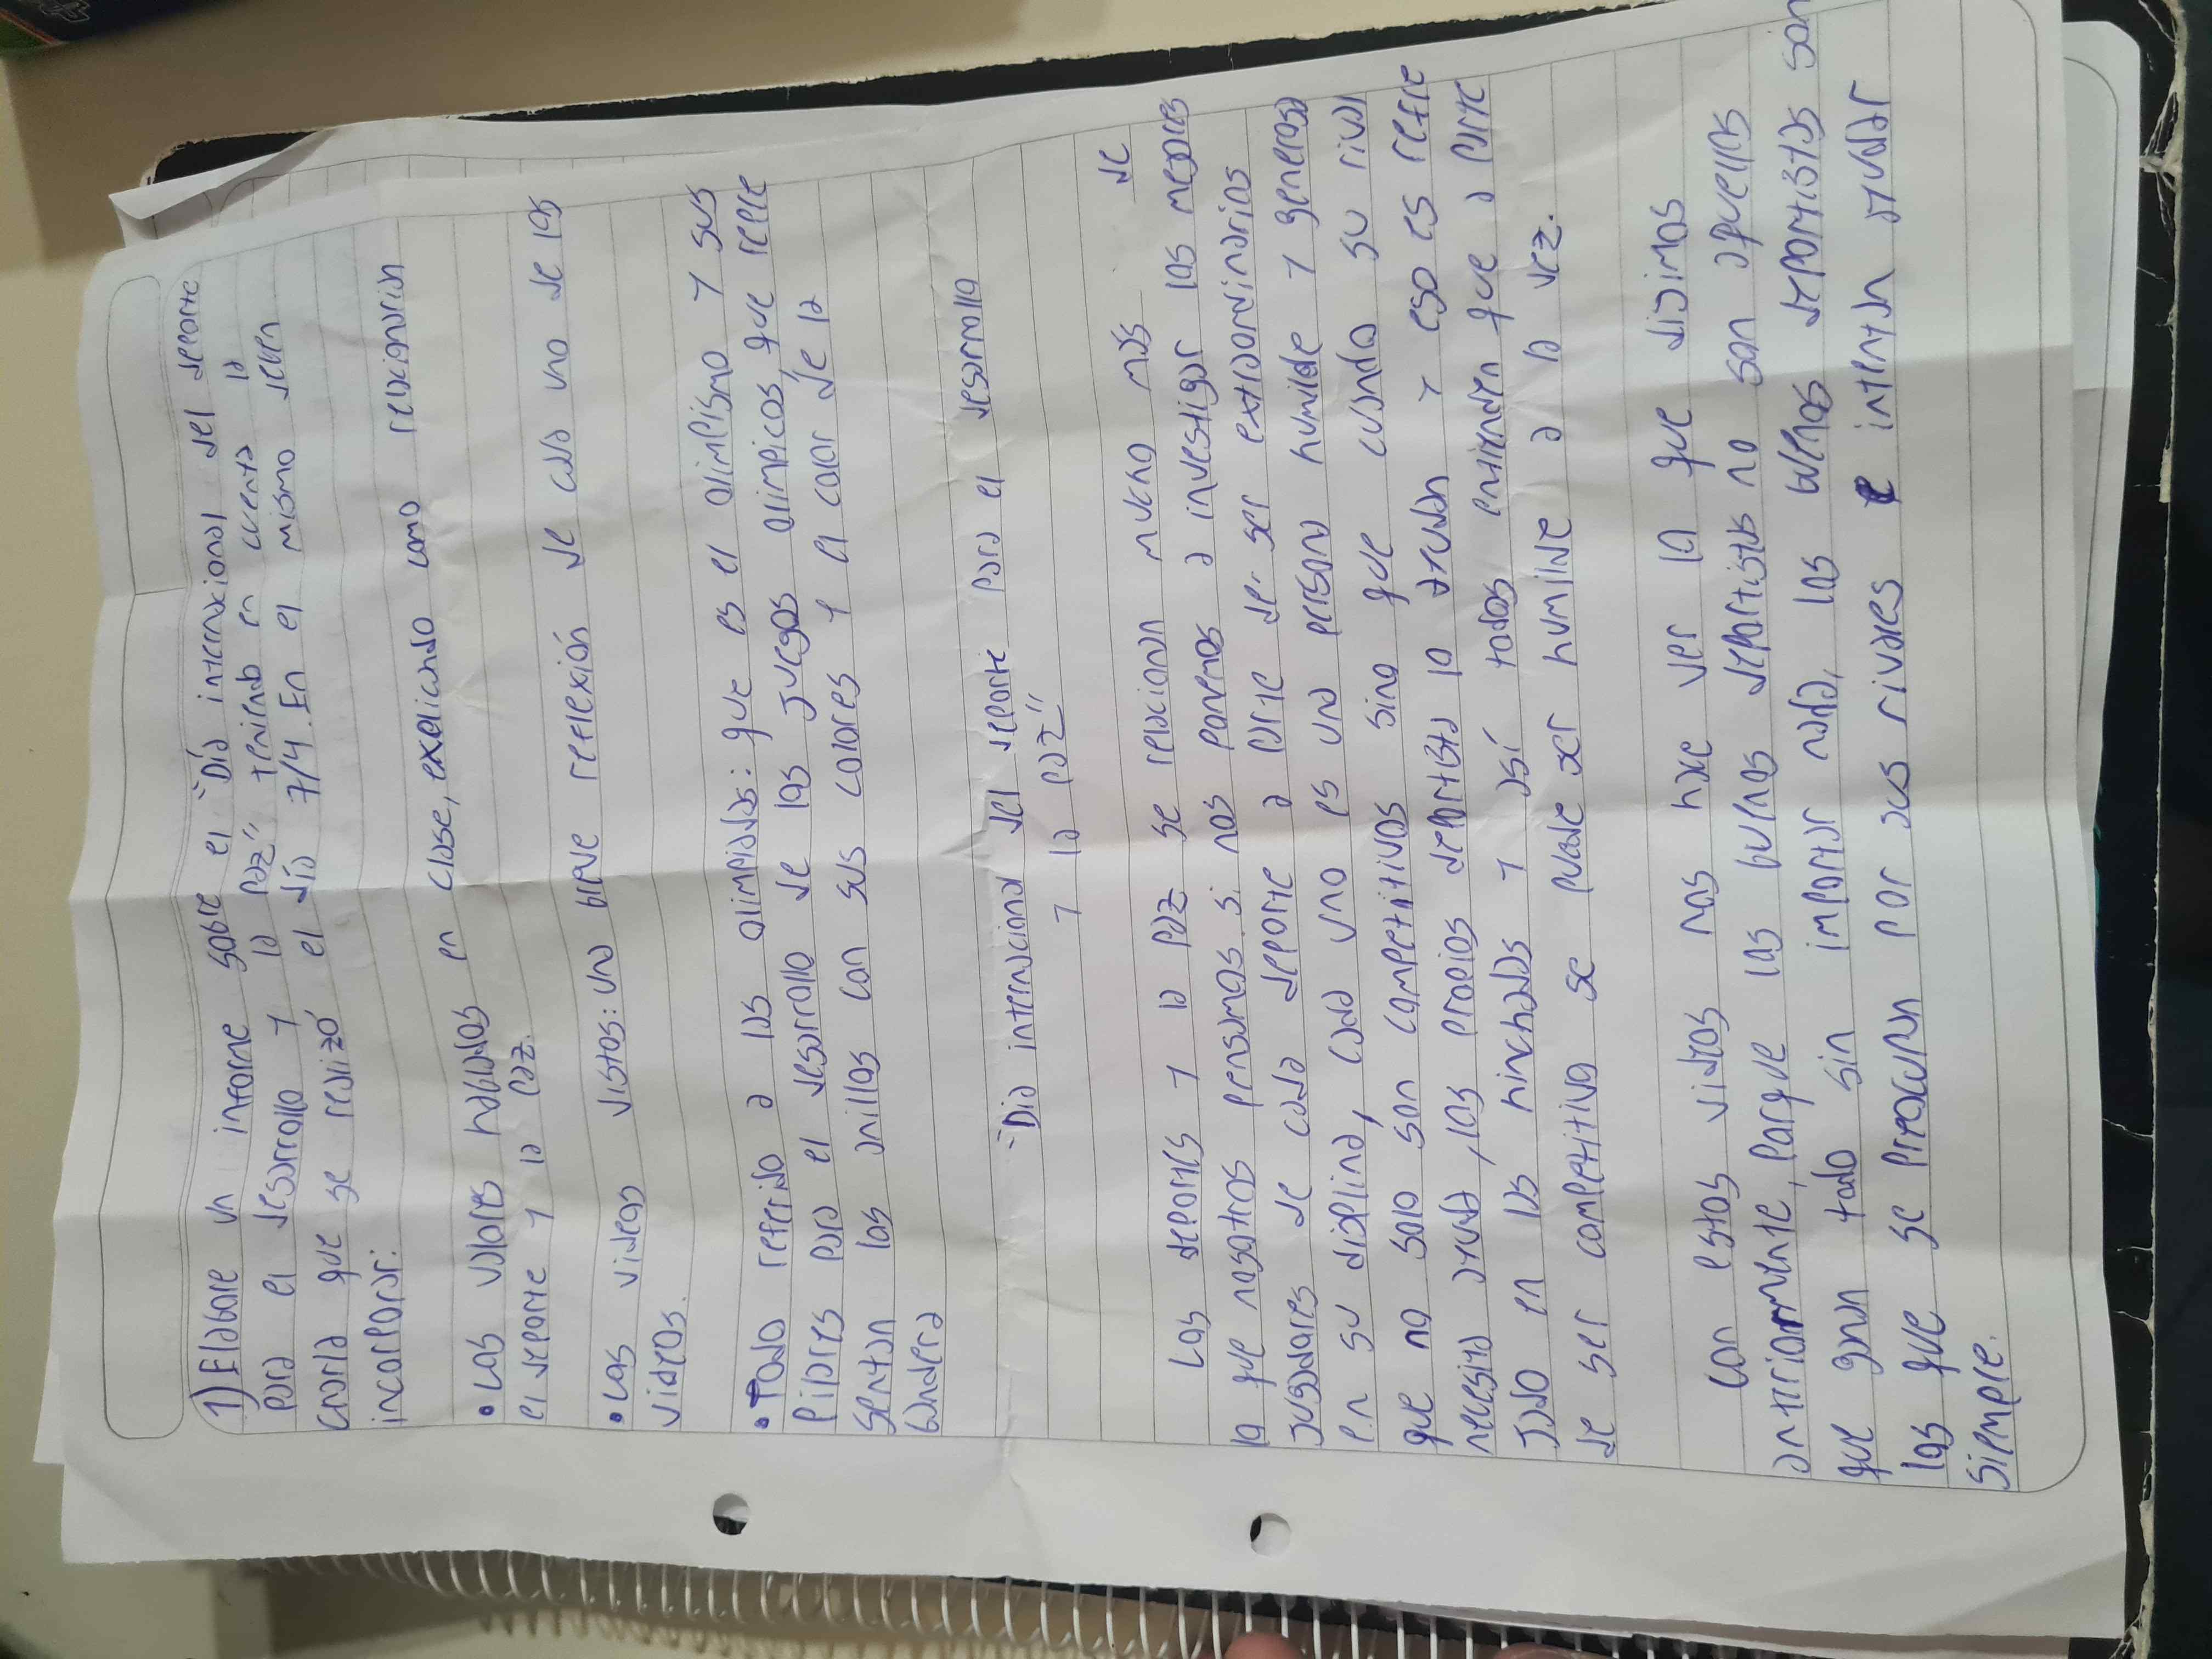 1) Elabore un informe sobre el "Día internacional del deporte
para el desarrollo y la paz", teniendo en cuenta la
charla que se realizó el día 7/4. En el mismo deben
incorporar:
• Los valores hablados en clase, explicando como relacionarian
el deporte y la paz.
• Los videos vistos: una breve reflexión de cada uno de los
videos.
• Todo referido a las olimpiadas: que es el olimpismo y sus
pilares para el desarrollo de los juegos olimpicos, que repre
sentan los anillos con sus colores y el color de la
bandera
"Dia internacional del deporte para el desarrollo
y la paz"
Los deportes y la paz se relacionan mucho más de
lo que nosotros pensamos. si nos ponemos a investigar los mejores
jugadores de cada deporte a parte de ser extraordinarios
en su displina, cada uno es una persona humilde y generosa
que no solo son competitivos sino que cuando su rival
necesita ayuda, los propios deportista lo ayudan y eso es refle
jado en las hinchadas y así todos entienden que a parte
de ser competitivo se puede ser humilde a la vez.
Con estos videos nos hace ver lo que disimos
anteriormente, porque los buenos deportistas no son aquellos
que ganan todo sin importar nada, los buenos deportistas son
los que se preocupan por sus rivales e intentan ayudar
siempre.